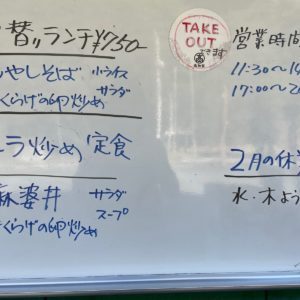 替リランチ ¥750
やしそば 小ライス
サラダ
くらげの卵炒め
ラ炒め 定食
麻婆丼 サラダ
スープ
くらげの卵炒め
TAKE
OUT
できます
営業時間
11:30〜
17:00〜
2月の休
水・木よう